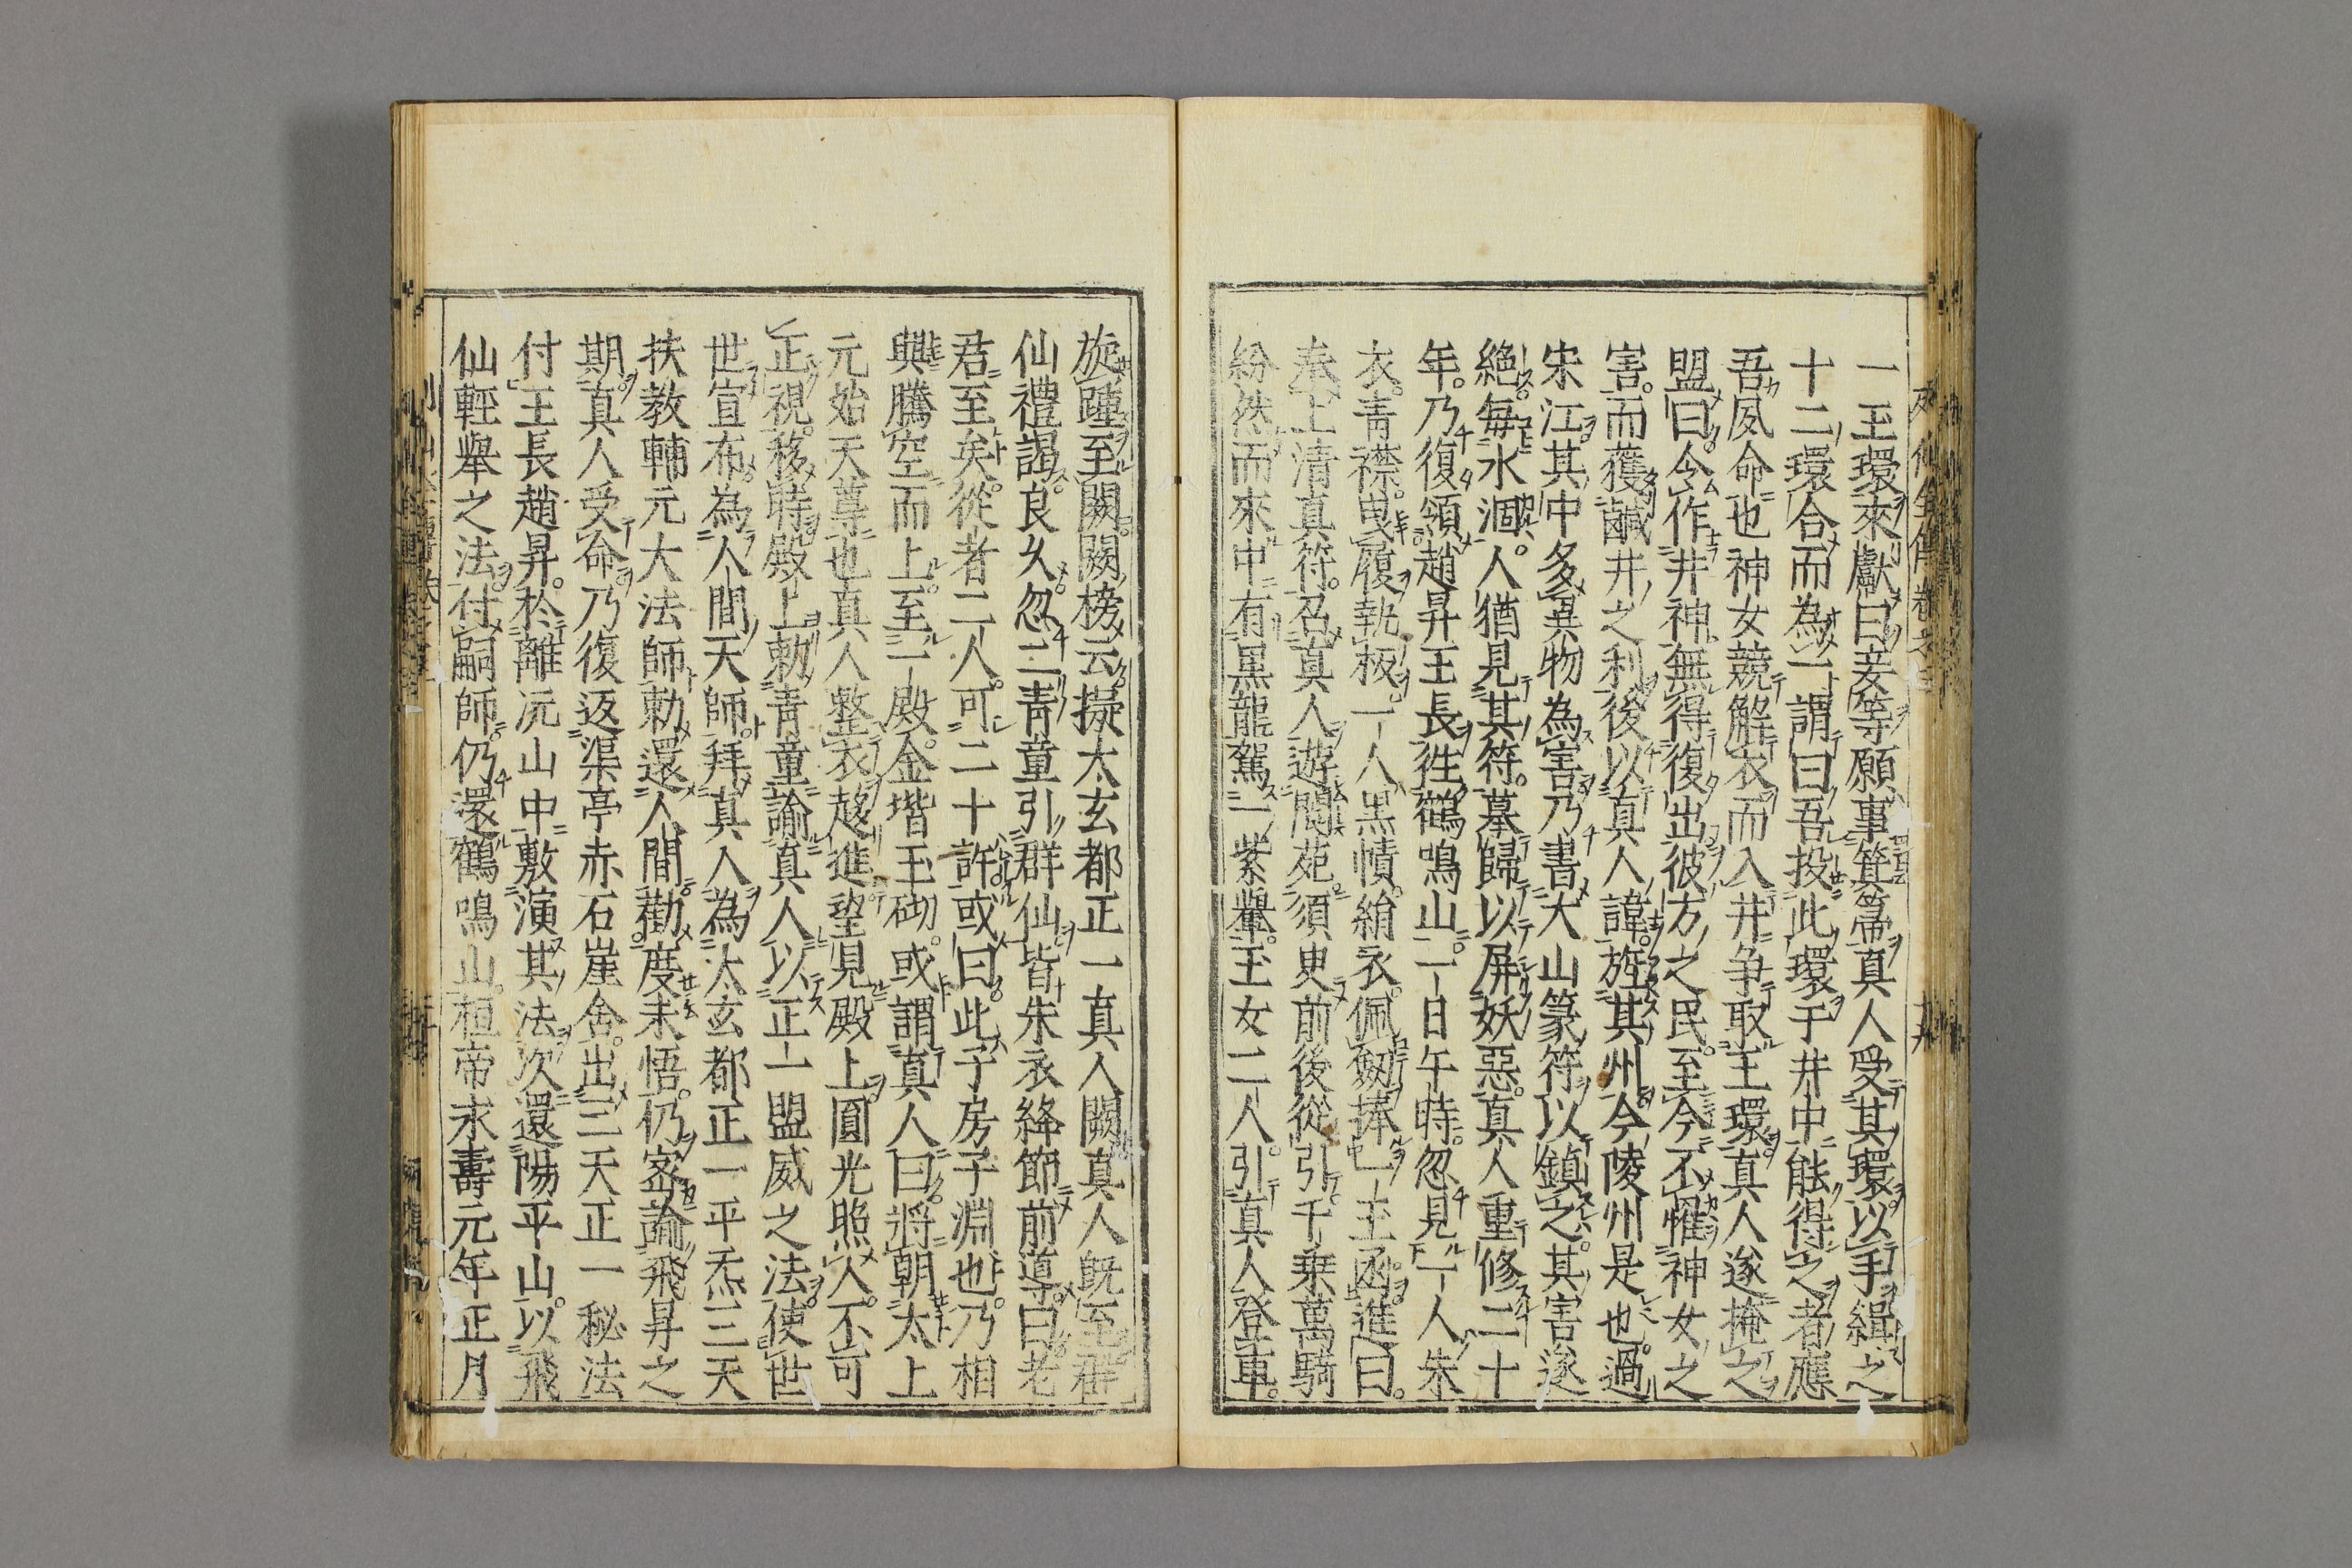 一玉環來獻曰妾等願事箕帚真人受其環以手緝之
十二環合而為一謂曰吾投此環于井中能得之者應
吾夙命也神女競解衣而入井争取玉環真人遂掩之
盟曰令作井神無得復出彼方之民至今不罹神女之
害。而獲鹹井之利後以真人諱旌其州今陵州是也過
宋江其中多異物為害乃書大山篆符以鎮之。其害遂
絶。每水涸。人猶見其符。墓歸以屏妖惡。真人重修二十
年。乃復領趙昇王長徃鶴鳴山。一日午時。忽見一人朱
衣。青襟。曳履執板。一人黒幘。綃衣。佩劔捧一玉函。進曰。
奉上清真符。召真人遊閬苑。須臾前後從引。千乗萬騎
紛然而來中有黒龍駕一紫轝。玉女二人。引真人登車。
旋踵至闕。闕榜云擬太玄都正一真人闕真人既至群
仙禮謁。良久忽二青童引群仙皆朱衣絳節前導。曰老
君至矣。從者二人。可二十許或曰此子房子淵也。乃相
與騰空而上。至一殿。金堦玉砌。或謂真人曰將朝太上
元始天尊也真人整衣趍進望見殿上圓光照人。不可
正視。移時殿上勅青童諭真人以正一盟威之法。使世
世宣布。為人間天師。拜真人為太玄都正一平炁三天
扶教輔元大法師勅還人間。勸度未悟。仍宻諭飛昇之
期。真人受命乃復返渠亭赤石崖舎。出三天正一秘法
付王長趙昇。於離沅山中敷演其法次還陽平山。以飛
仙輕舉之法付嗣師仍還鶴鳴山。桓帝永壽元年正月